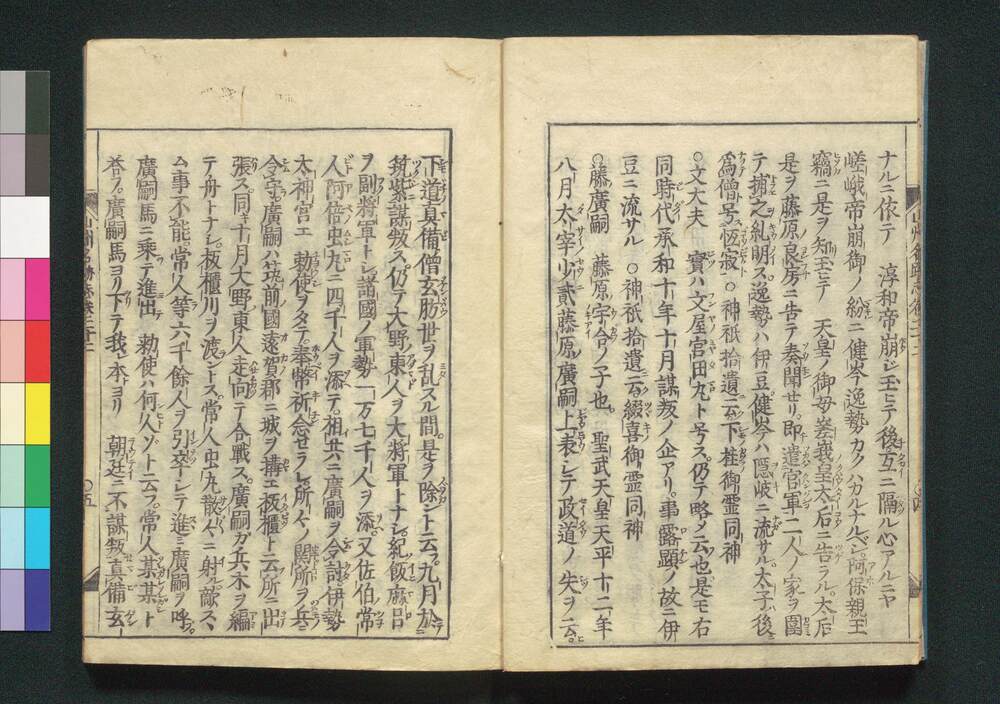 ナルニ依テ 淳和帝崩シ玉ヒテ後互ニ隔ル心アルニヤ
嵯峨帝崩御ノ紛ニ健岑逸勢カクハカルナルベシ阿保親王
竊ニ是ヲ知玉ヒテ 天皇ノ御母嵯峨皇太后ニ告ラル太后
是ヲ藤原良房ニ告テ奏聞セリ即遣官軍二人ノ家ヲ圍
テ捕之糺明ス逸勢ハ伊豆健岑ハ隠岐ニ流サル太子ハ後
為僧号恒寂○神祇拾遺云下桂御霊同神
○文大夫 實ハ文屋宮田丸ト号ス仍テ略メ云也是モ右
同時代承和十年十月謀叛ノ企アリ事露顕ノ故ニ伊
豆ニ流サル ○神祇拾遺云綴喜御霊同神
○藤廣嗣 藤原宇合ノ子也 聖武天皇天平十二年
八月太宰少貳藤原廣嗣上表シテ政道ノ失ヲ云
下道真備僧玄肪世ヲ乱スル間是ヲ除ント云九月於
筑紫謀叛ス仍テ大野東人ヲ大将軍トナシ紀飯麻呂
ヲ副将軍トシ諸國ノ軍勢一万七千人ヲ添又佐伯常
人阿倍虫丸ニ四千人ヲ添テ相共ニ廣嗣ヲ令討伊勢
太神宮エ 勅使ヲタテ奉幣祈念セラレ所々ノ關所ヲ兵
令守廣嗣ハ筑前國遠賀郡ニ城ヲ搆エ板櫃ト云所ニ出
張ス同キ十月大野東人走向テ合戦ス廣嗣ガ兵木ヲ編
テ舟トナシ板櫃川ヲ渡ントス常人虫丸散々ニ射ル敵スヽ
ム事不能常人等六千餘人ヲ引率シテ進ミ廣嗣ヲ呼
廣嗣馬ニ乗テ進出 勅使ハ何人ゾト云フ常人某某ト
答フ廣嗣馬ヨリ下テ我本ヨリ 朝廷ニ不謀叛真備玄